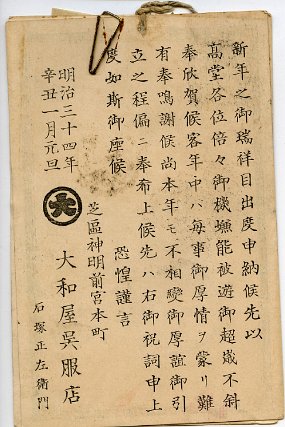 新年之御瑞祥目出度申納候先以
髙堂各位倍々御機嫌能被遊御超歳不斜
奉欣賀候客年中ハ毎事御厚情ヲ蒙リ難
有奉鳴謝候尚本年モ不相變御厚誼御引
立之程偏ニ奉希上候先ハ右御祝詞申上
度如斯御座候
恐惶謹言
明治三十四年
辛丑一月元旦
芝區神明前宮本町
大和屋呉服店
石塚正左衛門